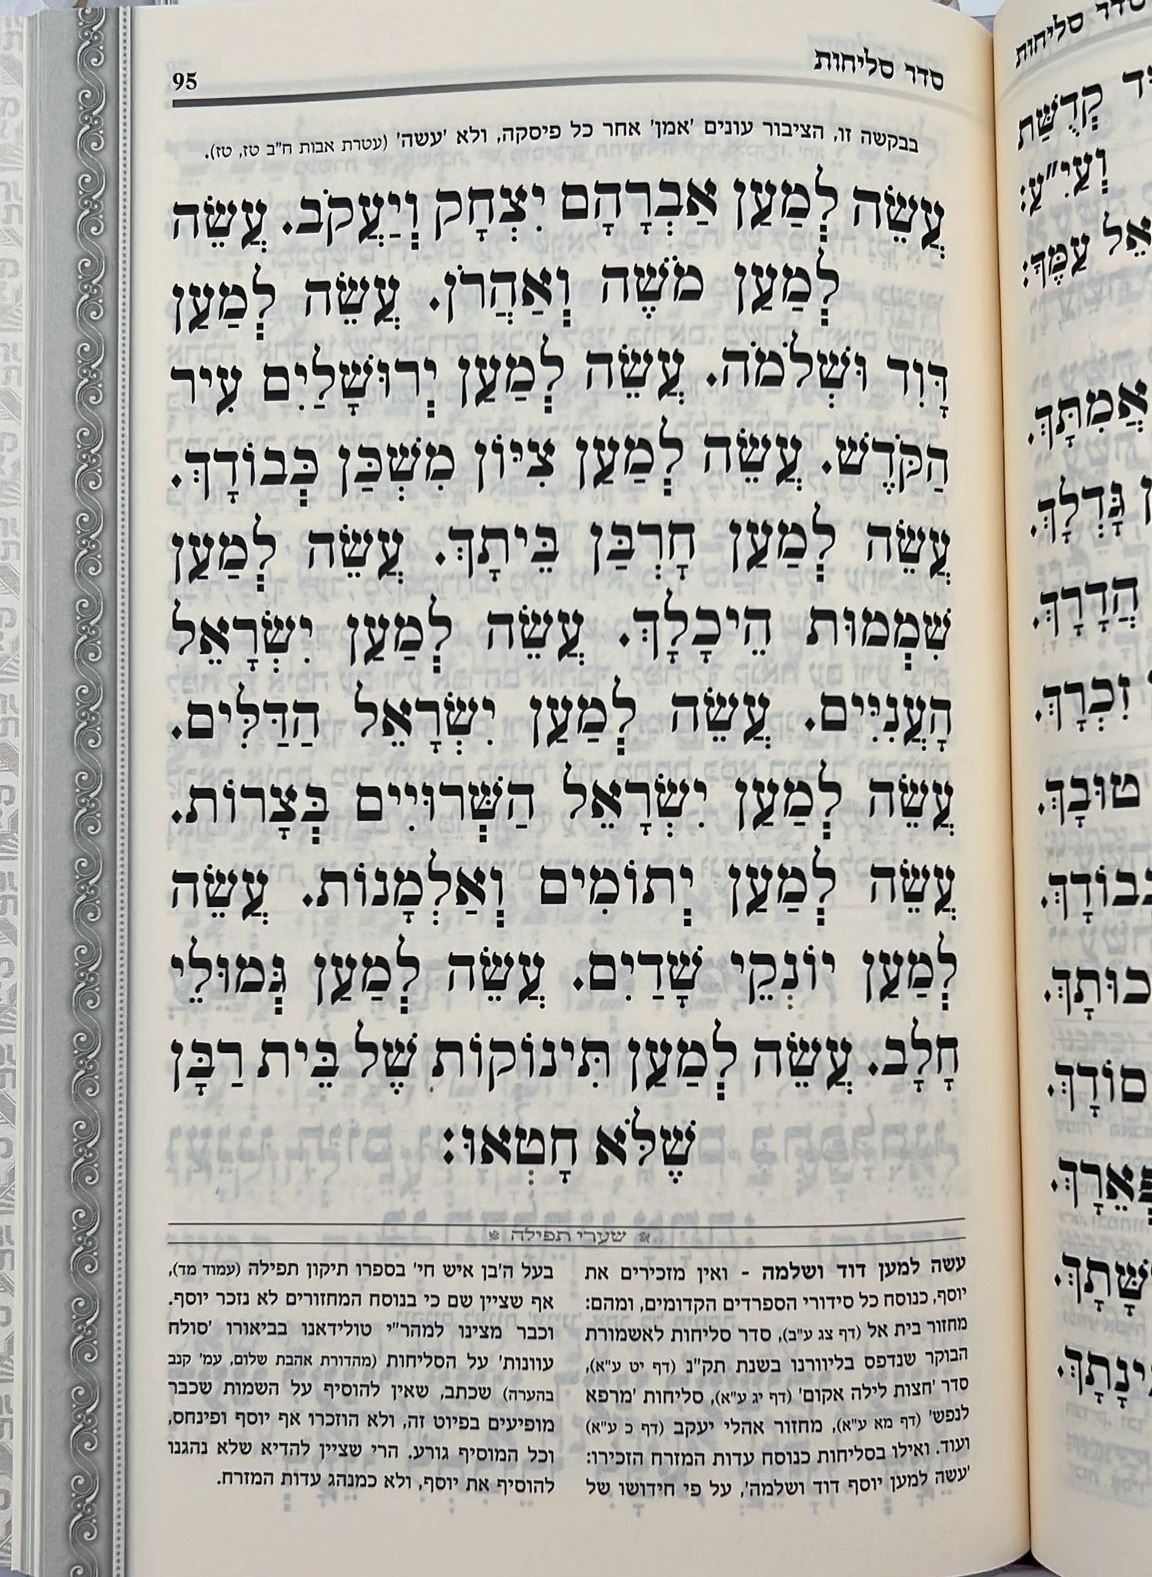 סדר סליחות
95
בבקשה זו, הציבור עונים 'אמן' אחר כל פיסקה, ולא 'עשה' (עטרת אבות ח"ב טז, טז).
עֲשֵׂה לְמַעַן אַבְרָהָם יִצְחָק וְיַעֲקֹב. עֲשֵׂה
לְמַעַן מֹשֶׁה וְאַהֲרֹן. עֲשֵׂה לְמַעַן
דָּוִד וּשְׁלֹמֹה. עֲשֵׂה לְמַעַן יְרוּשָׁלַיִם עִיר
הַקֹּדֶשׁ. עֲשֵׂה לְמַעַן צִיּוֹן מִשְׁכַּן כְּבוֹדָךְ.
עֲשֵׂה לְמַעַן חָרְבַּן בֵּיתָךְ. עֲשֵׂה לְמַעַן
שִׁמְמוּת הֵיכָלָךְ. עֲשֵׂה לְמַעַן יִשְׂרָאֵל
הָעֲנִיִּים. עֲשֵׂה לְמַעַן יִשְׂרָאֵל הַדַּלִּים.
עֲשֵׂה לְמַעַן יִשְׂרָאֵל הַשְּׁרוּיִים בְּצָרוֹת.
עֲשֵׂה לְמַעַן יְתוֹמִים וְאַלְמָנוֹת. עֲשֵׂה
לְמַעַן יוֹנְקֵי שָׁדַיִם. עֲשֵׂה לְמַעַן גְּמוּלֵי
חָלָב. עֲשֵׂה לְמַעַן תִּינוֹקוֹת שֶׁל בֵּית רַבָּן
שֶׁלֹּא חָטְאוּ:
שערי תפילה
עשה למען דוד ושלמה - ואין מזכירים את
יוסף, כנוסח כל סידורי הספרדים הקדומים, ומהם:
מחזור בית אל (דף צג ע"ב), סדר סליחות לאשמורת
הבוקר שנדפס בליוורנו בשנת תק"נ (דף יט ע"א),
סדר 'חצות לילה אקום' (דף יג ע"א), סליחות 'מרפא
לנפש' (דף מא ע"א), מחזור אהלי יעקב (דף כ ע"א)
ועוד. ואילו בסליחות כנוסח עדות המזרח הזכירו:
'עשה למען יוסף דוד ושלמה', על פי חידושו של
בעל ה'בן איש חי' בספרו תיקון תפילה (עמוד מד),
אף שציין שם כי בנוסח המחזורים לא נזכר יוסף.
וכבר מצינו למהר"י טולידאנו בביאורו 'סולח
עוונות' על הסליחות (מהדורת אהבת שלום, עמ' קנב
בהערה) שכתב, שאין להוסיף על השמות שכבר
מופיעים בפיוט זה, ולא הוזכרו אף יוסף ופינחס,
וכל המוסיף גורע. הרי שציין להדיא שלא נהגנו
להוסיף את יוסף, ולא כמנהג עדות המזרח.
סדר סליחות
קְדֻשַּׁת
וְעִי"ע:
עַמֶּךָ:
אֲמִתָּךְ.
גָּדְלָךְ.
הֲדָרָךְ.
זִכְרָךְ.
טוּבָךְ.